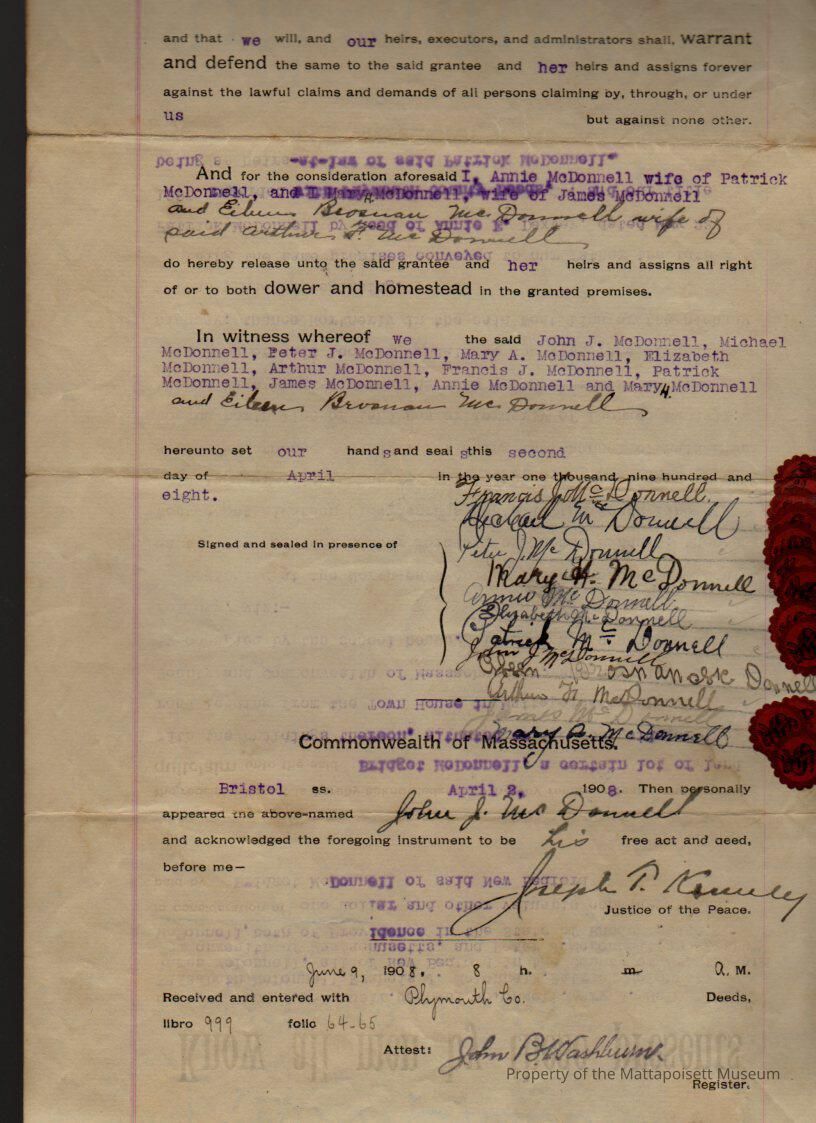 and that we will, and our heirs, executors, and administrators shall, warrant
and defend the same to the said grantee and her heirs and assigns forever
against the lawful claims and demands of all persons claiming by, through, or under
us but against none other.
And for the consideration aforesaid I, Annie McDonnell wife of Patrick
McDonnell, and I Mary H. McDonnell, wife of James McDonnell
and Eileen Brosnan McDonnell wife of
said Arthur F. McDonnell
do hereby release unto the said grantee and her heirs and assigns all right
of or to both dower and homestead in the granted premises.
In witness whereof we the said John J. McDonnell, Michael
McDonnell, Peter J. McDonnell, Mary A. McDonnell, Elizabeth
McDonnell, Arthur McDonnell, Francis J. McDonnell, Patrick
McDonnell, James McDonnell, Annie McDonnell and Mary H. McDonnell
and Eileen Brosnan McDonnell
hereunto set our hands and seals this second
day of April in the year one thousand nine hundred and
eight.
Francis J. McDonnell.
Michael McDonnell
Signed and sealed in presence of
Peter J. McDonnell
Mary H. McDonnell
Annie McDonnell
Elizabeth McDonnell
Patrick McDonnell
John J McDonnell
Arthur F. McDonnell
James McDonnell
Mary A. McDonnell
Commonwealth of Massachusetts.
Bristol ss. April 2, 1908. Then personally
appeared the above-named John J. McDonnell
and acknowledged the foregoing instrument to be his free act and deed,
before me—
Joseph T. Kenney
Justice of the Peace.
June 9, 1908. 8 h. m A. M.
Received and entered with Plymouth Co. Deeds,
libro 999 folio 64-65
Attest: John B. Washburn.
Property of the Mattapoisett Museum
Register.